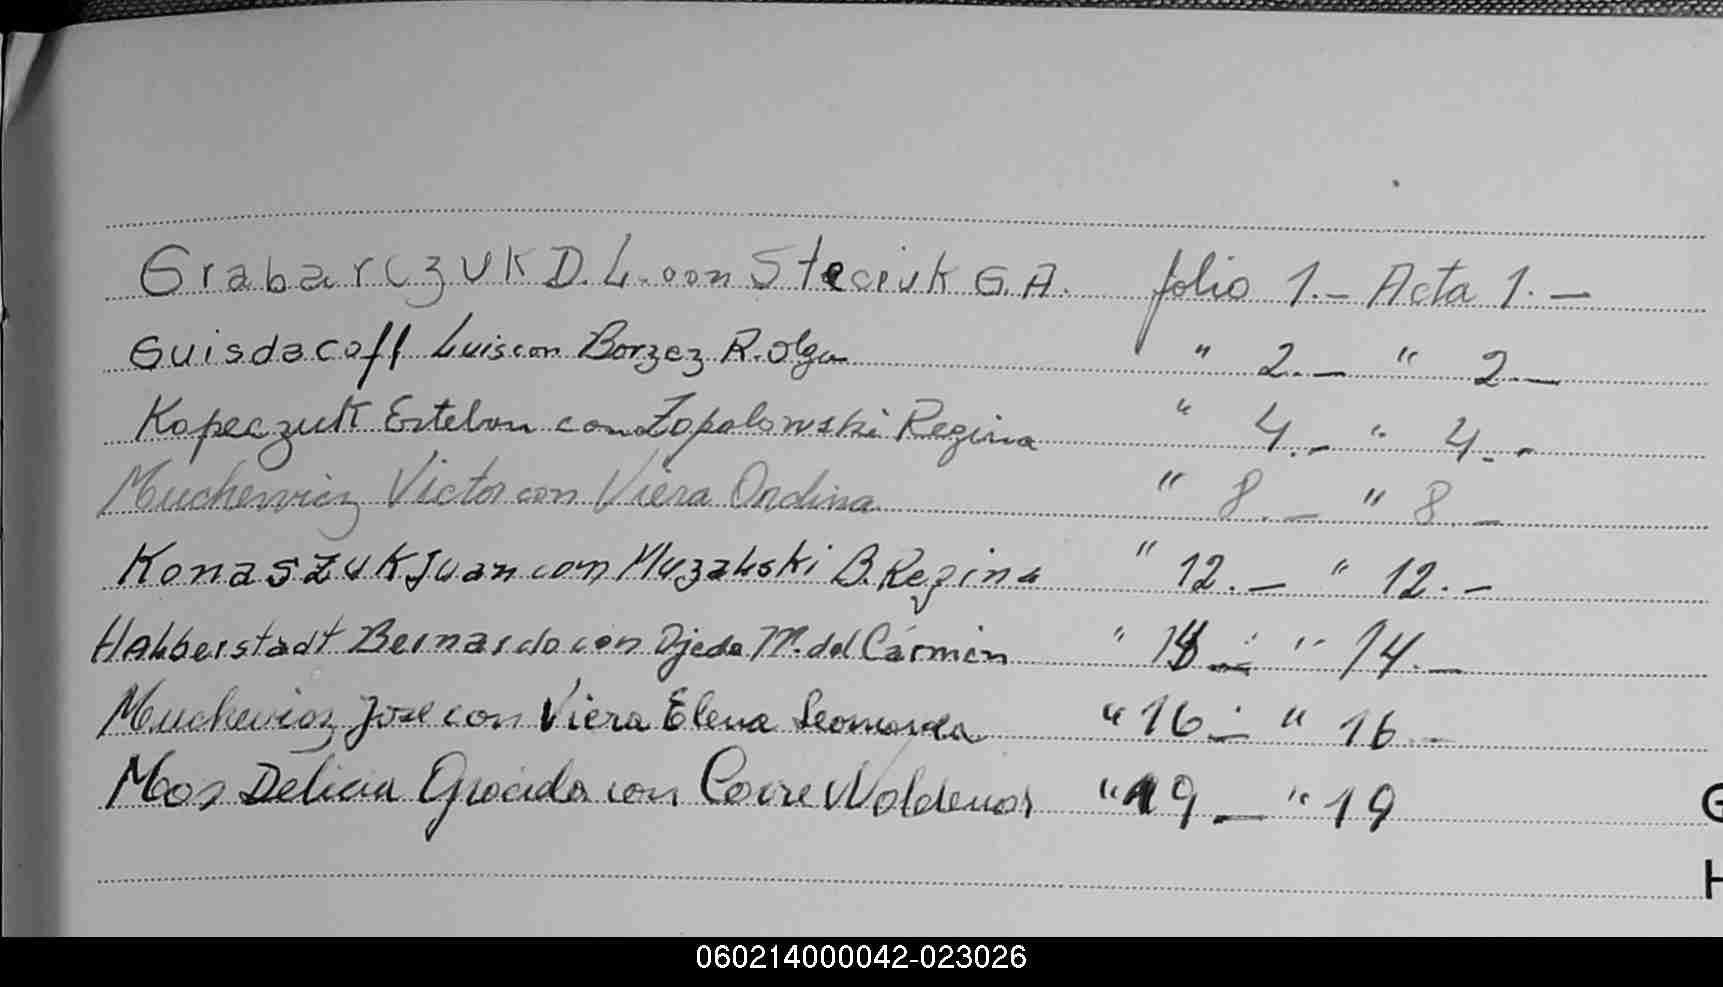 Grabarczuk D. L. con Steciuk G. A. folio 1.- Acta 1.-
Guisdacoff Luis con Borzez R. Olga " 2.- " 2.-
Kopeczuk Esteban con Zopolowski Regina " 4.- " 4.-
Muchewicz Victor con Viera Ondina " 8.- " 8.-
Konaszuk Juan con Muzalski B. Regina " 12.- " 12.-
Halberstadt Bernardo con Ojeda M. del Cármen " 14.- " 14.-
Muchewicz Jose con Viera Elena Leonarda " 16.- " 16.-
Mos Delicia con Waldemar " 19.- " 19
G
H
060214000042-023026